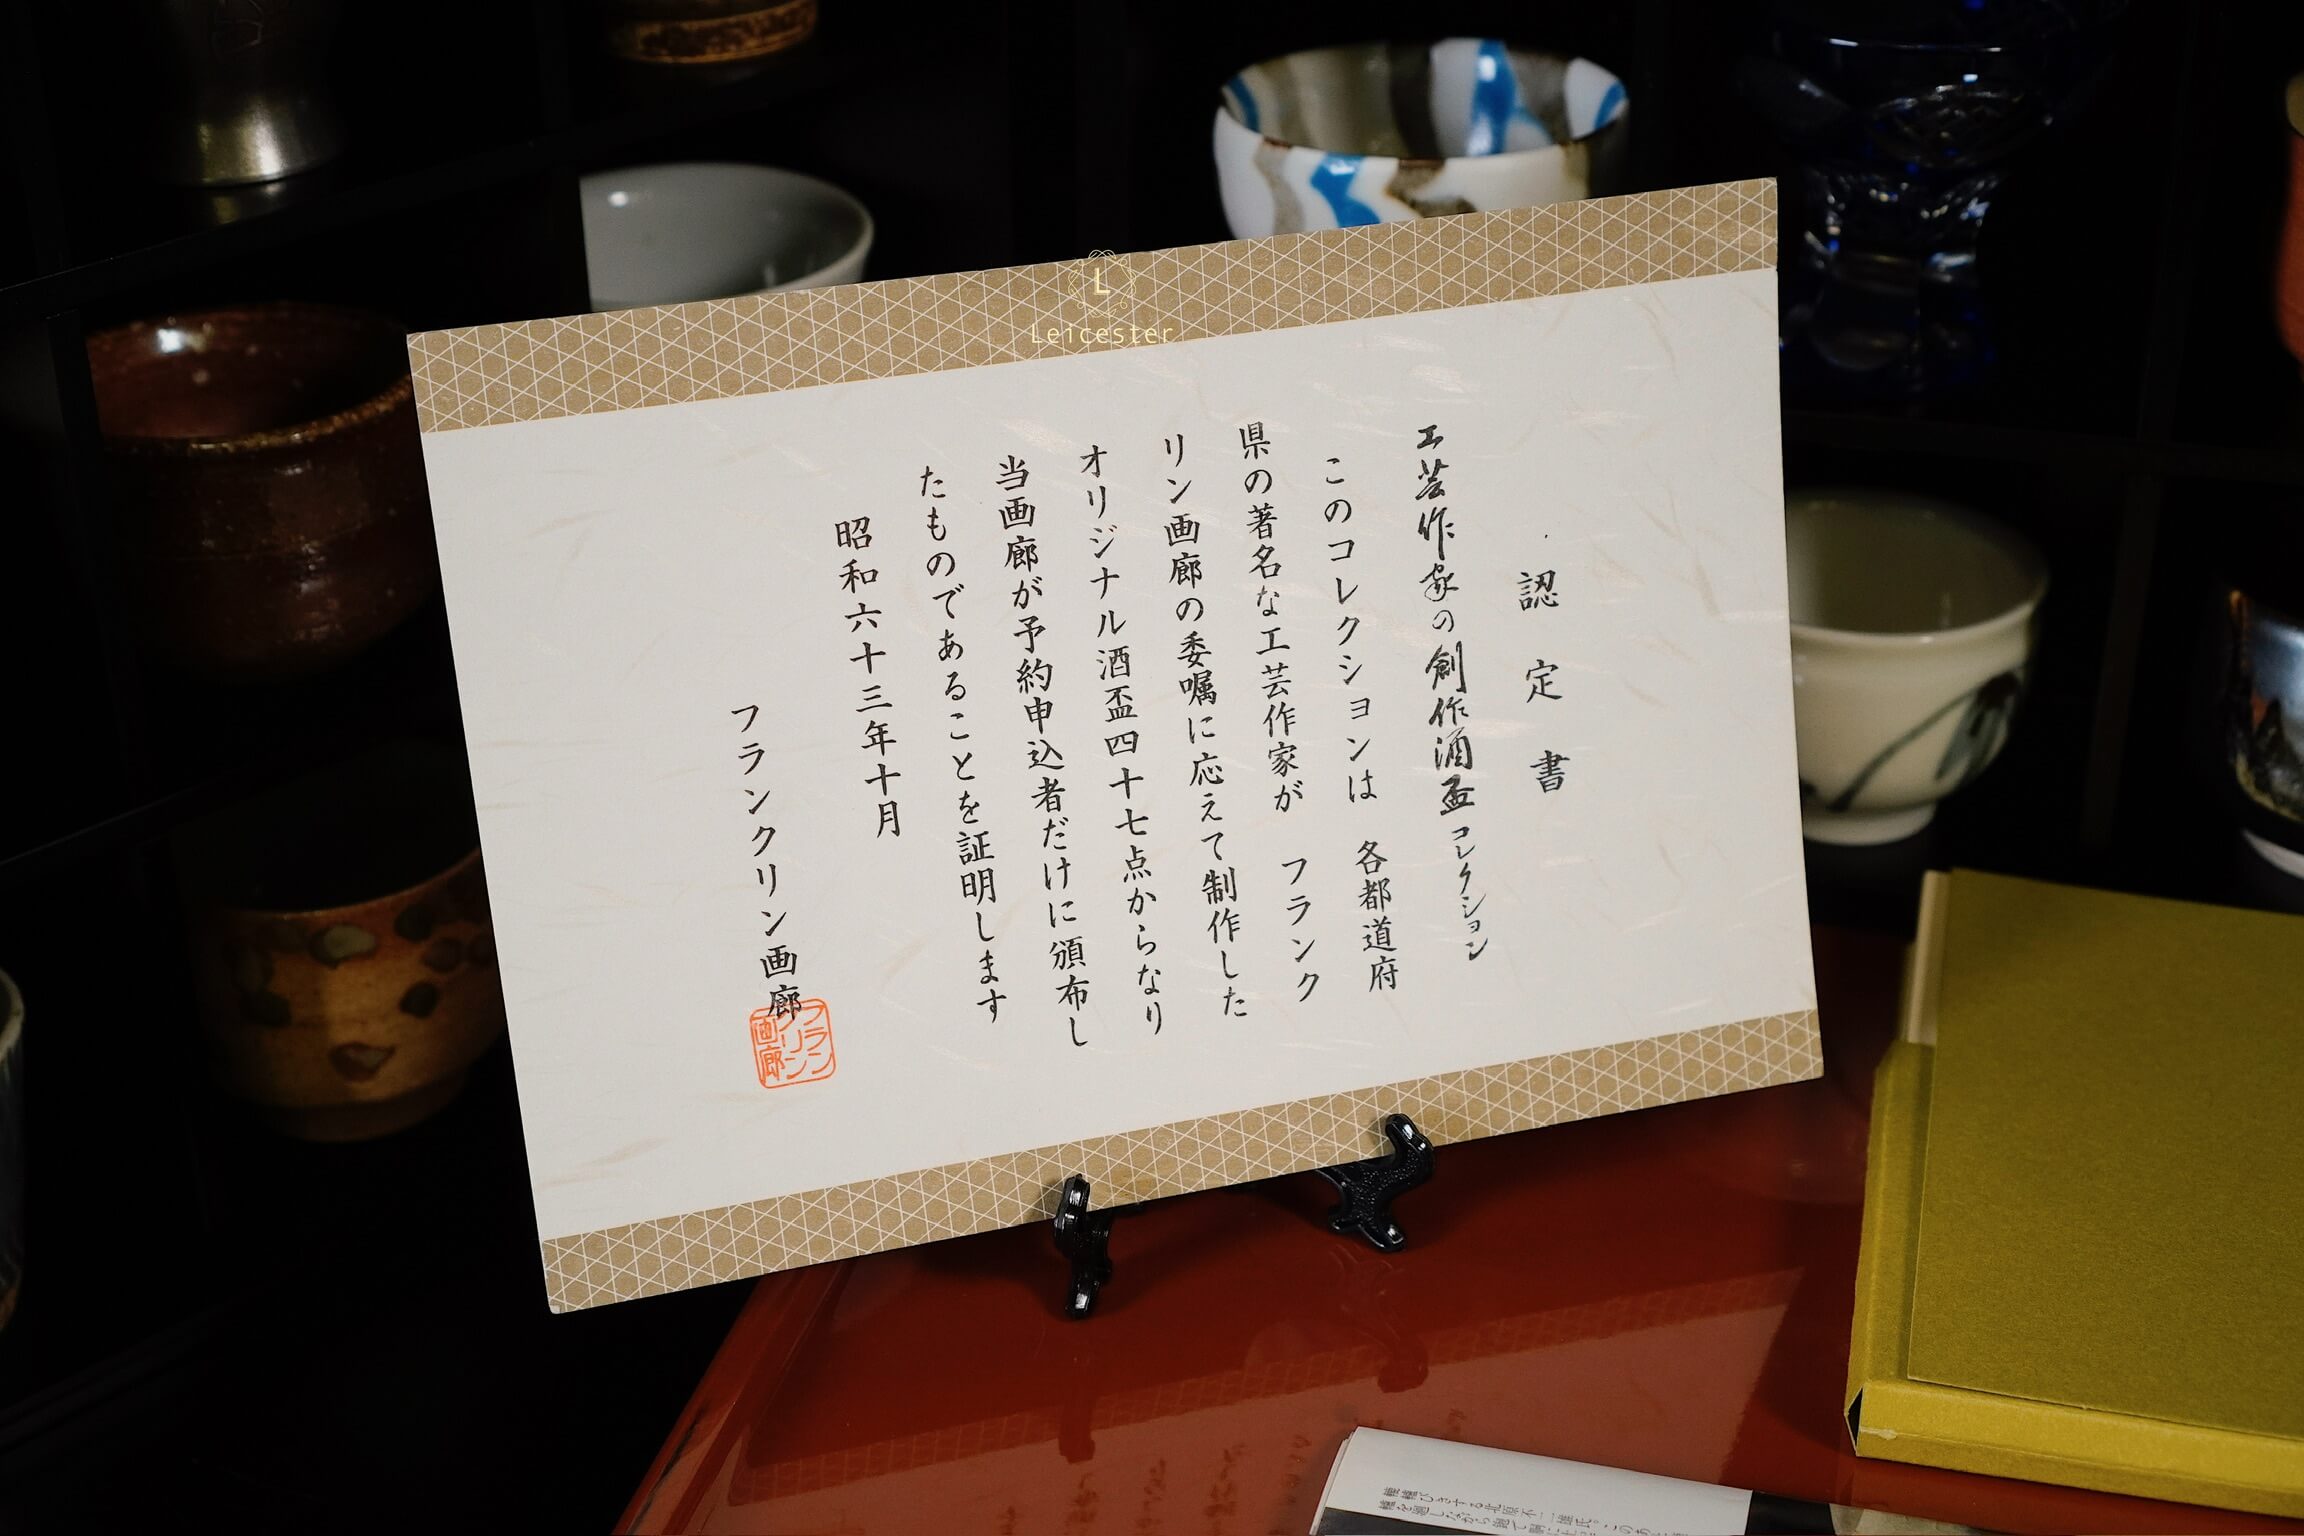 認定書
工芸作家の創作酒盃コレクション
このコレクションは 各都道府
県の著名な工芸作家が フランク
リン画廊の委嘱に応えて制作した
オリジナル酒盃四十七点からなり
当画廊が予約申込者だけに頒布し
たものであることを証明します
昭和六十三年十月
フランクリン画廊
フラン
クリン
画廊
L
Leicester